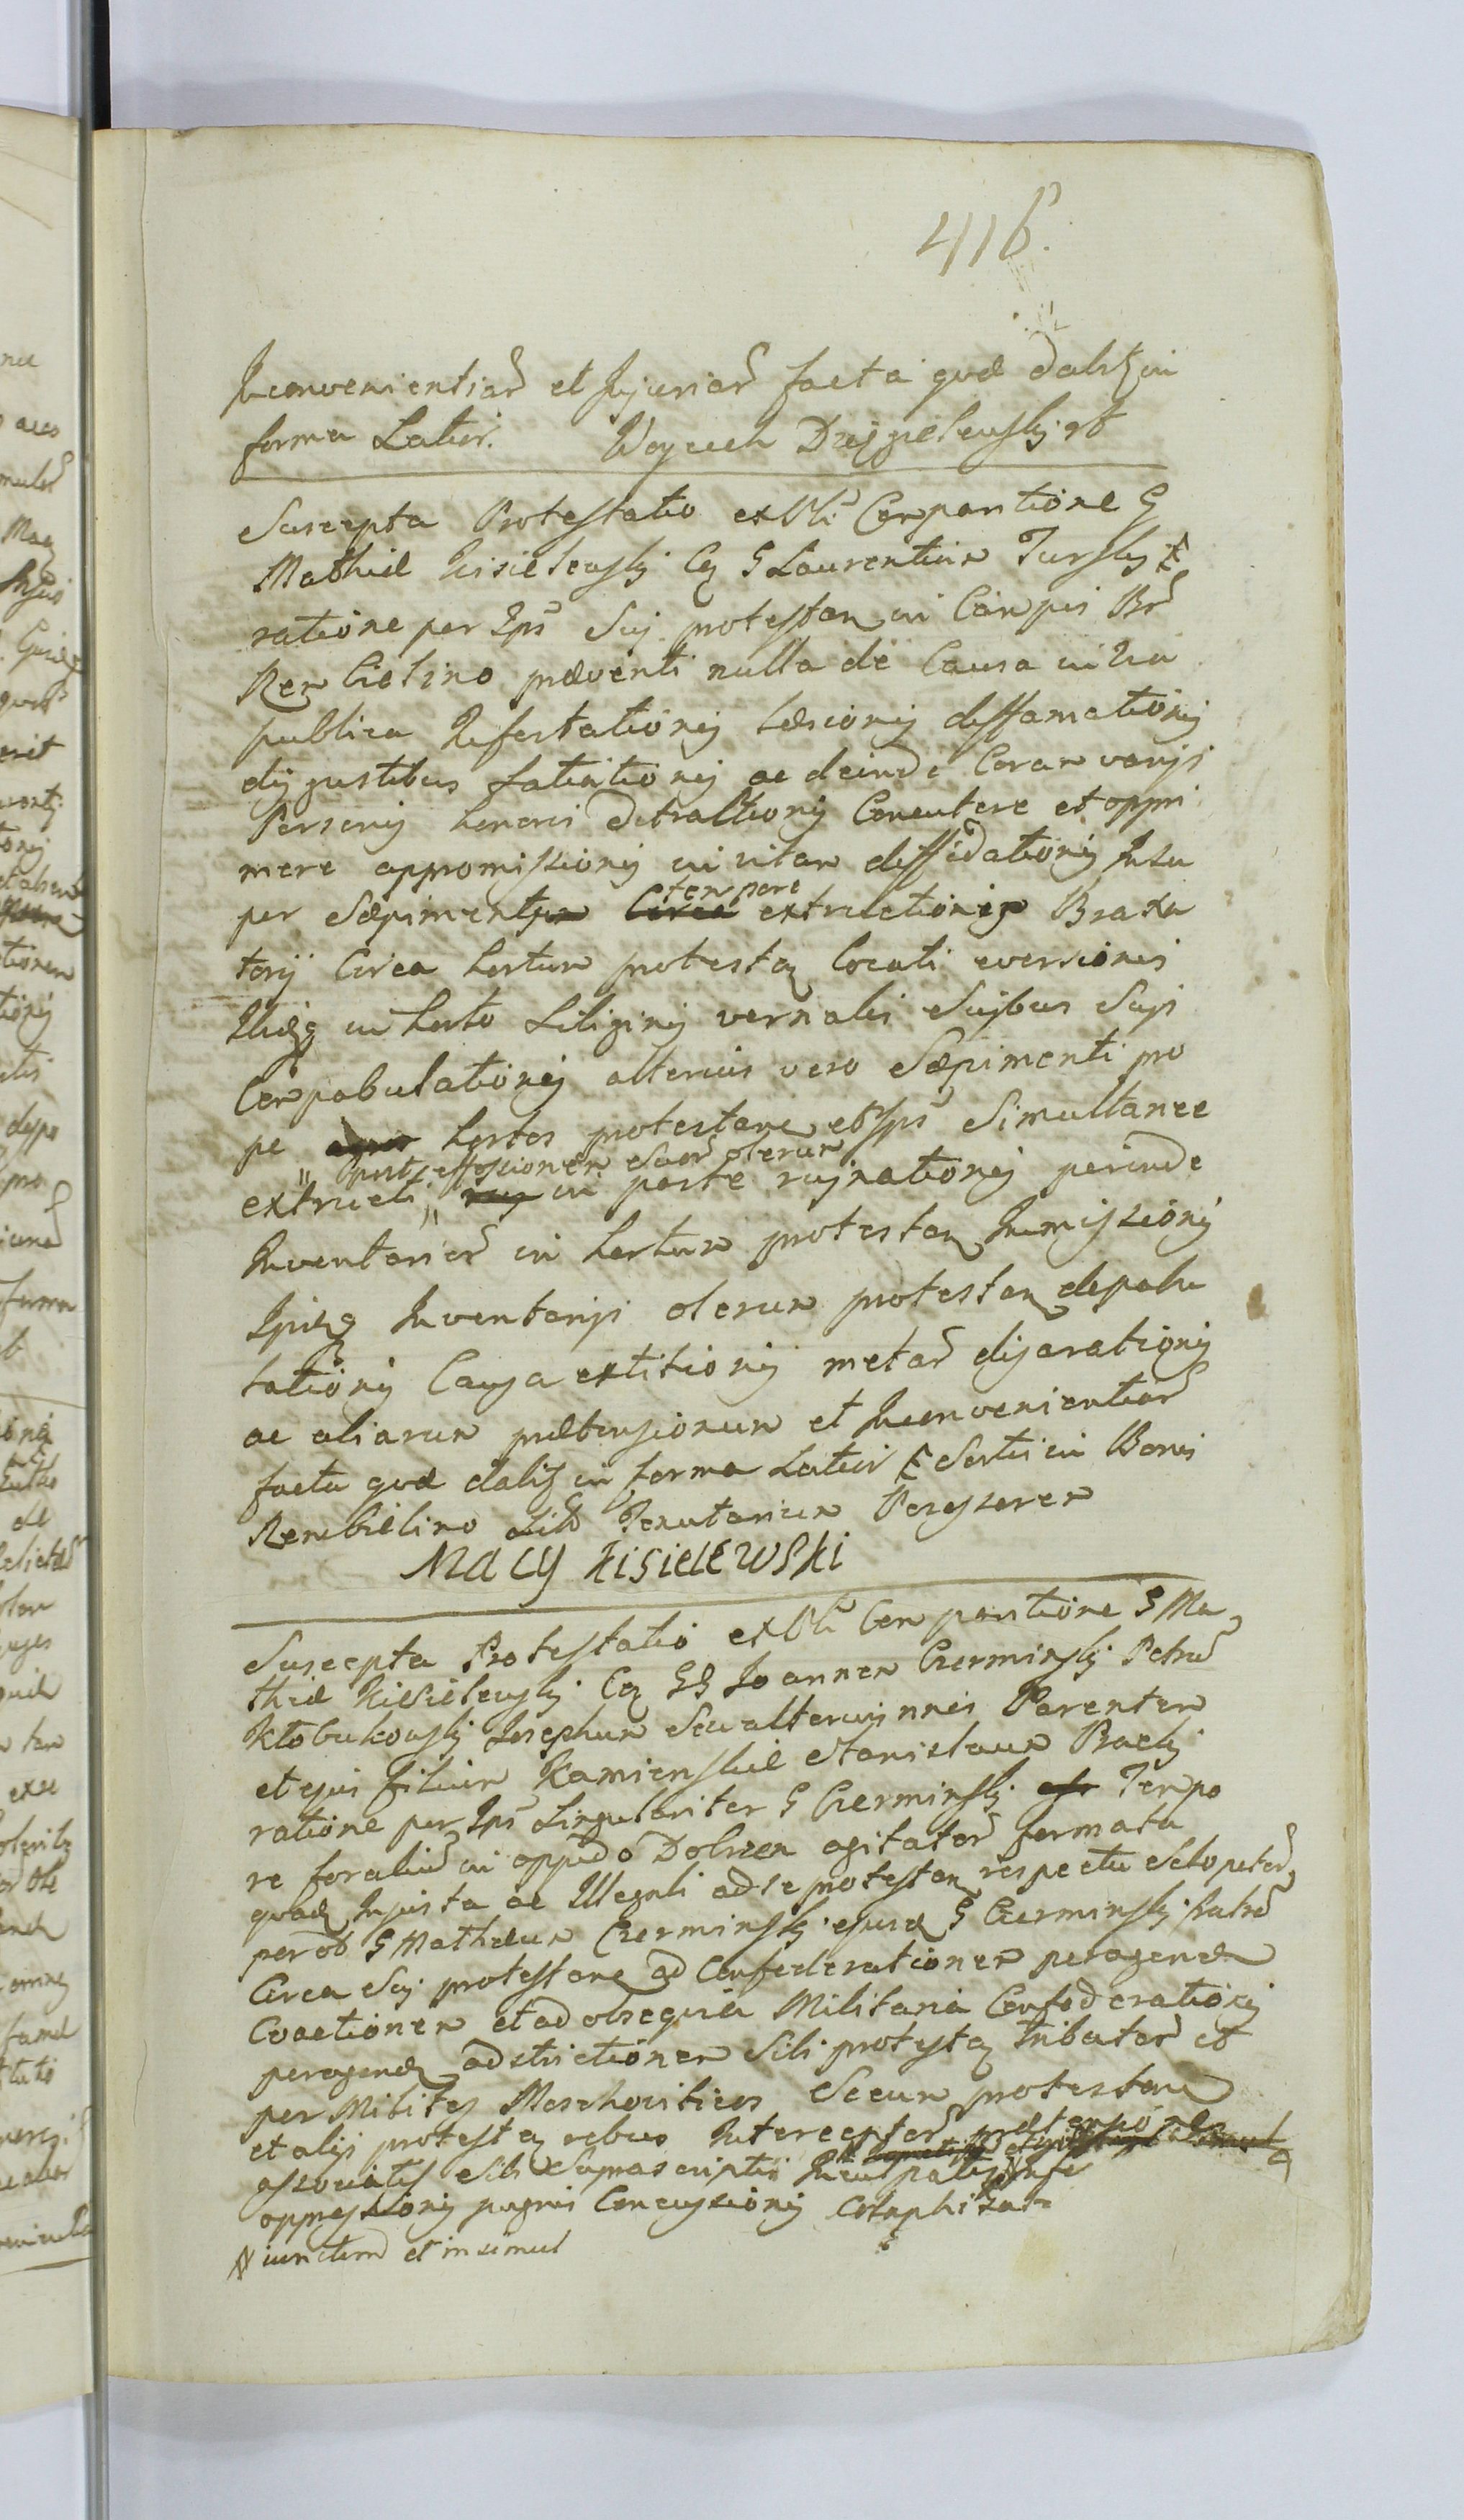 416.
Inconvenientiar et Injuriar facta quæ dalsz in
forma Latior. Woyciech Dzięgielewskj
Suscepta Protestatio ex Obli Comparitione G
Mathiæ Kisielewskj Cq G Laurentium Turskj
ratione per Ips Suj protestan in Campis Br
Rembielino præventi nulla de Causa in via
publica Infestationis læsionis diffamationis
ac deinde Coram varijs
Personis honoris detractionis Concutere et oppri
mere appromissionis in vitam diffidationis Insu
per Sæpimentum Circa tempore extructionis Braxa
torij Circa hortum protestaq locati eversionis
in horto Siliginis vernalis Suibus Suji
Compabulationis alterius vero Sæpimenti pro
pe hortos protestan et Ips Simultanee
post effossionem Suor olerum
extructi in parte rujnationis perinde
Inventarior in hortum protestan Immissionis
Inventarijs olerum protestan depabu
lationis Causa extitionis metar disarationis
ac aliarum prætensionum et Inconvenientiar
facta quæ dalsz in forma Latiori Sortis in Bonis
Rembielino Tenutarium Possessorem
Macy Kisielewski
Suscepta Protestatio ex Obli Comparitione G Ma
thiæ Kisielewskj Cq GG Joannem Czerminskj Petrum
Kłobukowskj Josephum Seu alterius nominis Parentem
et ejus filium Kamienskie Stanislaum Brackj
ratione per Ips Singulariter G Czerminskj Tempo
re foralium in oppido Dobrzen agitator formata
Injusta ac Illegali ad se protestan respectu Sclopetor
per ob G Mathæum Czerminskj ejusd G Czerminskj fratre
Circa Suj protestan ad Confederationem peragenda
Coactionem et ad obsequia Militaria Confæderationis
peragenda adstrictionem Sibi protestq tributor et
per Milites Moschoviticos Secum protestan
et alijs protestq rebus Interceptor prætensione
associatis Sibi Suprascriptis Inculpatis Infe
oppressionis pugnis Concussionis Colaphiza
iunctim et in simul